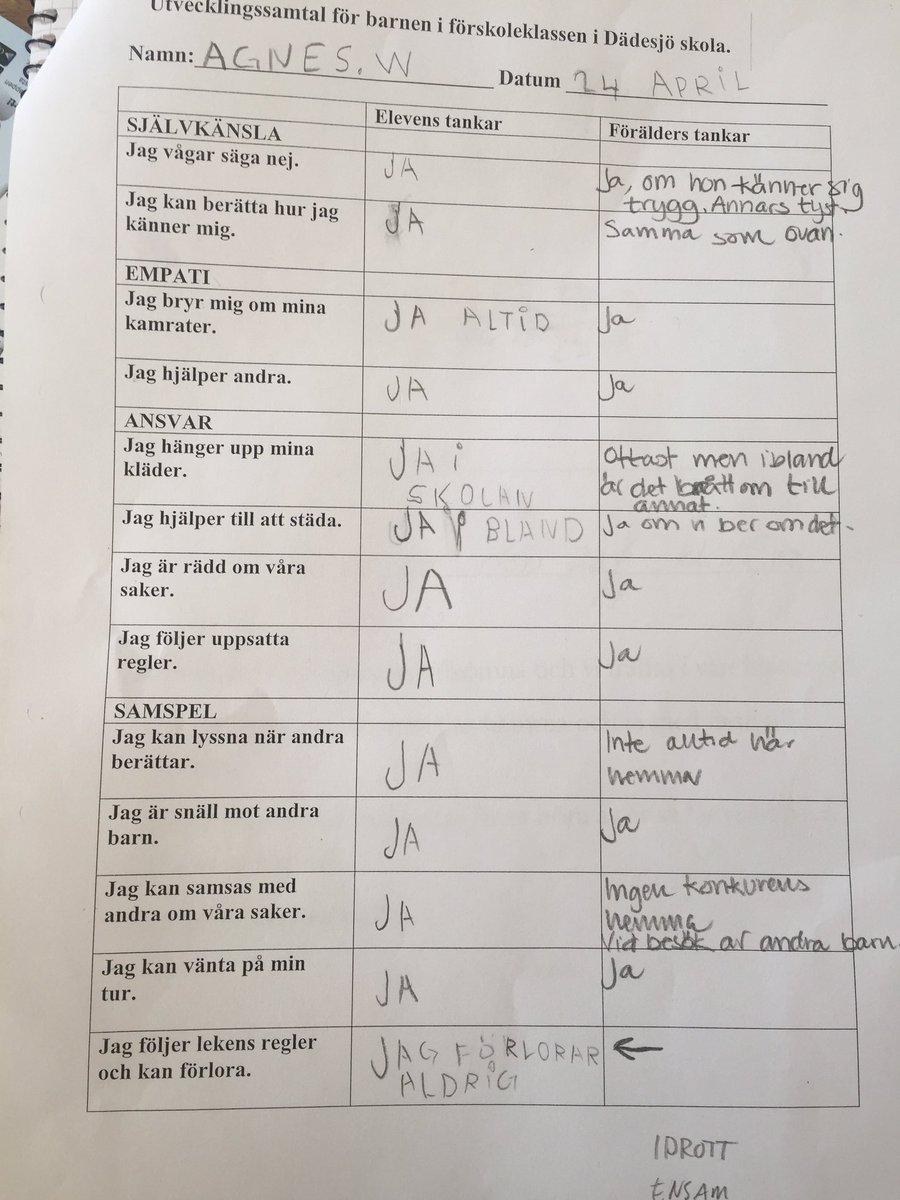 Utvecklingssamtal för barnen i förskoleklassen i Dädesjö skola.
Namn: AGNES.W Datum 24 APRiL
Elevens tankar Förälders tankar
SJÄLVKÄNSLA
Jag vågar säga nej. JA Ja, om hon känner sig
trygg. Annars tyst.
Jag kan berätta hur jag JA Samma som ovan.
känner mig.
EMPATI
Jag bryr mig om mina JA ALTiD Ja
kamrater.
Jag hjälper andra. JA Ja
ANSVAR
Jag hänger upp mina JA i Oftast men ibland
kläder. SKOLAN är det bråttom till
annat.
Jag hjälper till att städa. JA BLAND Ja om vi ber om det.
Jag är rädd om våra JA Ja
saker.
Jag följer uppsatta JA Ja
regler.
SAMSPEL
Jag kan lyssna när andra JA Inte alltid här
berättar. hemma
Jag är snäll mot andra JA Ja
barn.
Jag kan samsas med JA Ingen konkurens
andra om våra saker. hemma
Vid besök av andra barn
Jag kan vänta på min JA Ja
tur.
Jag följer lekens regler JAG FÖRLORAR ←
och kan förlora. ALDRiG
IDROTT
ENSAM